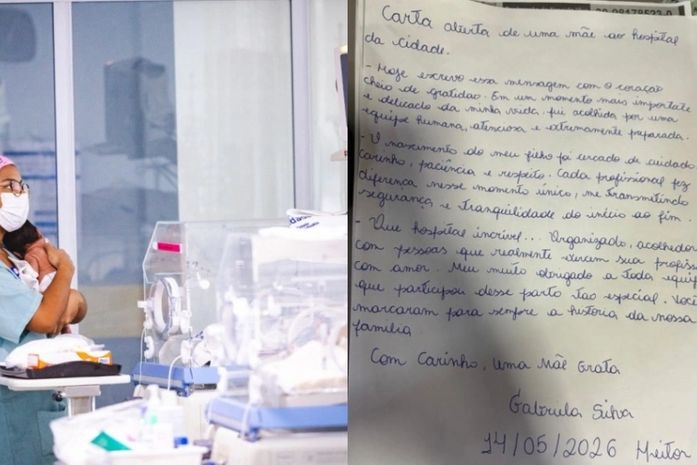 Carta aberta de uma mãe ao hospital
da cidade.
- Hoje escrevo essa mensagem com o coração
cheio de gratidão. Em um momento mais importante
e delicado da minha vida, fui acolhida por uma
equipe humana, atenciosa e extremamente preparada.
- O nascimento do meu filho foi cercado de cuidado
carinho, paciência e respeito. Cada profissional fez
diferença nesse momento único, me transmitindo
segurança e tranquilidade do início ao fim
- Que hospital incrível... Organizado, acolhedor
com pessoas que realmente exercem sua profissã
com amor. Meu muito obrigado a toda equip
que participou desse parto tão especial. Você
marcaram para sempre a história da nossa
família
Com Carinho, uma Mãe Grata
Gabriela Silva
14/05/2026 Heitor